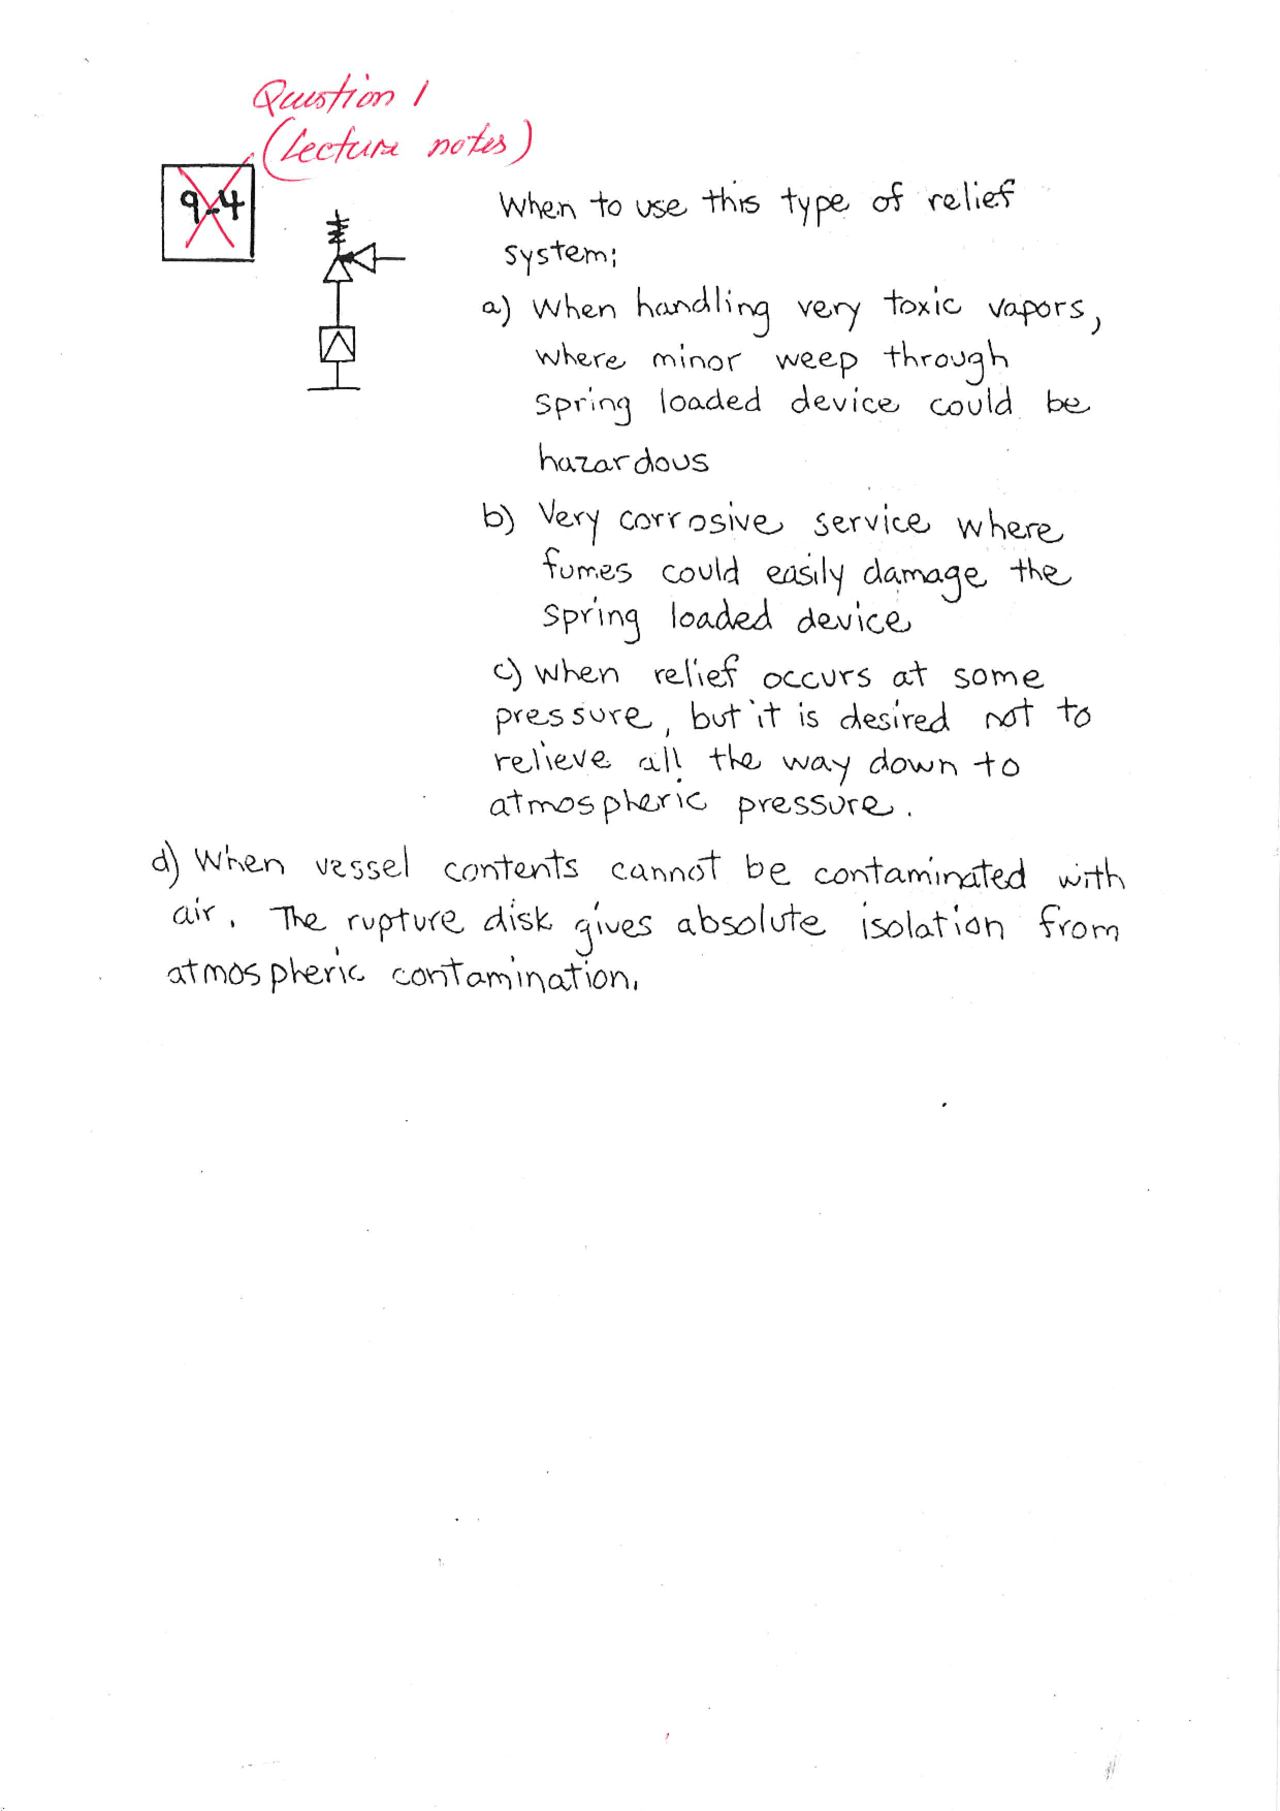 Question 1
(Lecture notes)
9-4
When to use this type of relief
system;
a) When handling very toxic vapors,
where minor weep through
spring loaded device could be
hazardous
b) Very corrosive service where
fumes could easily damage the
spring loaded device
c) When relief occurs at some
pressure, but it is desired not to
relieve all the way down to
atmospheric pressure.
d) When vessel contents cannot be contaminated with
air. The rupture disk gives absolute isolation from
atmospheric contamination.